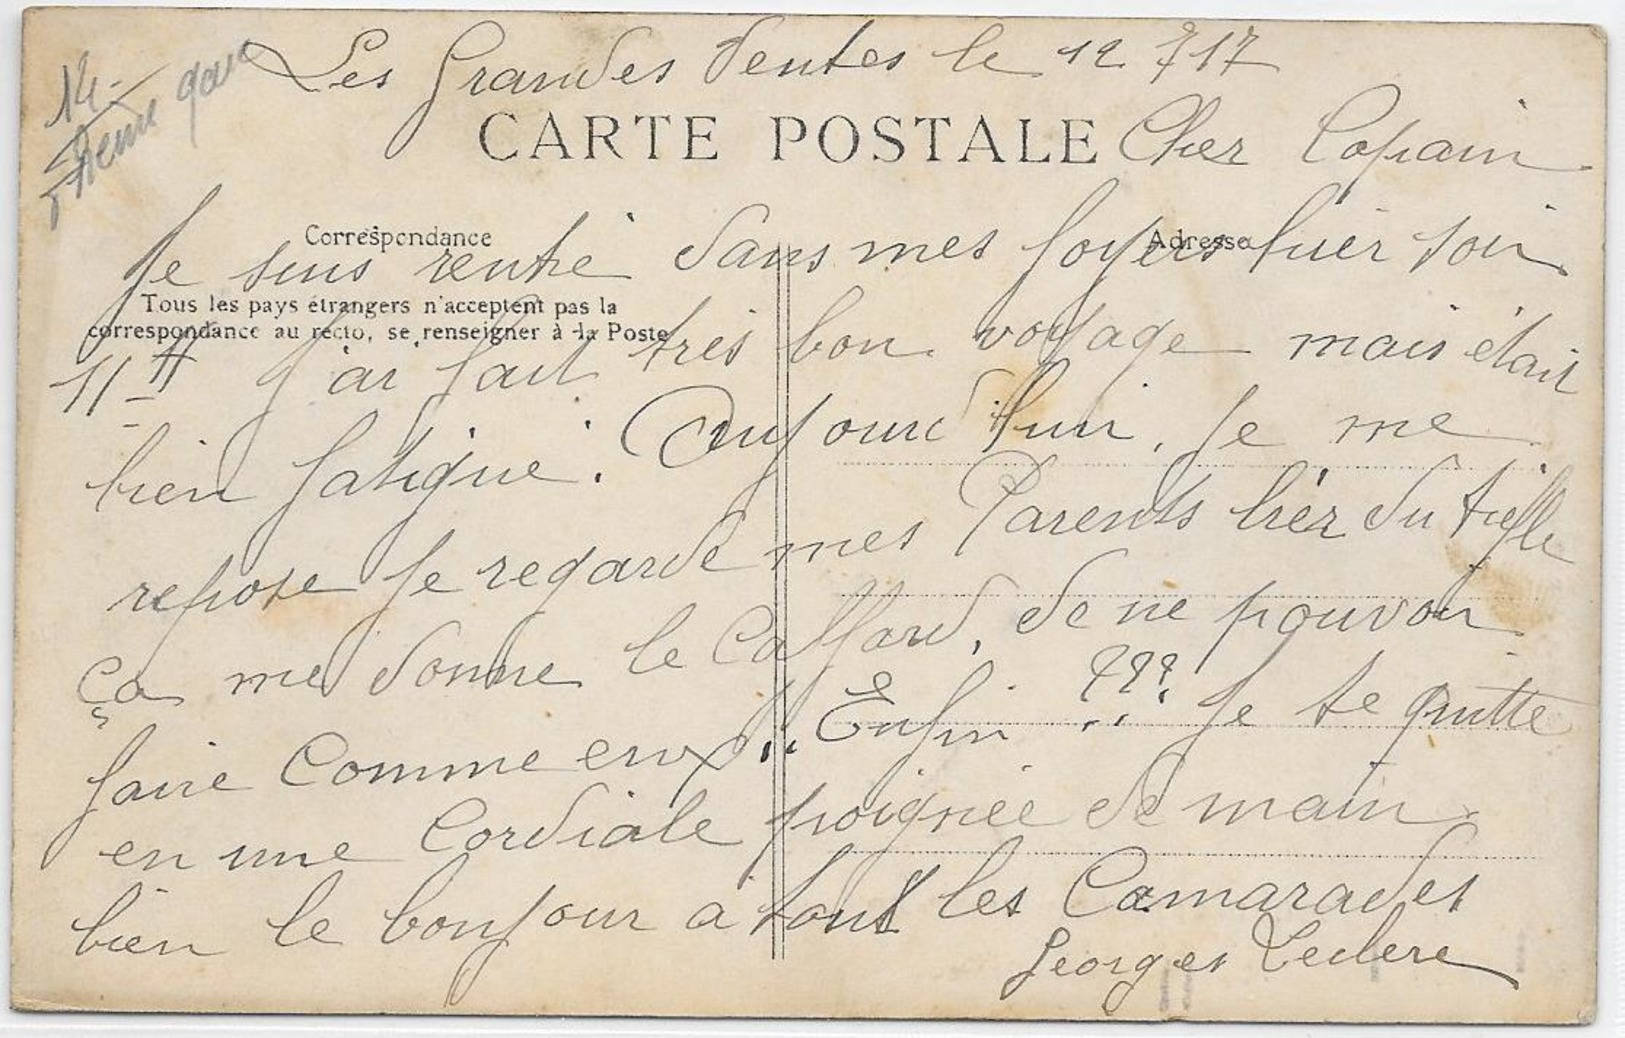 Les Grandes Ventes le 12 7 17
CARTE POSTALE Cher Copain
Correspondance
Adresse
Je suis rentré dans mes foyers hier soir
Tous les pays étrangers n'acceptent pas la
correspondance au recto, se renseigner à la Poste
11 H J'ai fait très bon voyage mais était
bien fatigué. Aujourd'hui, Je me
repose Je regarde mes Parents lier du
ça me donne le Caffard, de ne pouvoir
faire Comme eux!! Enfin ??? Je te quitte
en une Cordiale poignée de main
bien le bonjour a tous les Camarades
Georges Leclere
14-